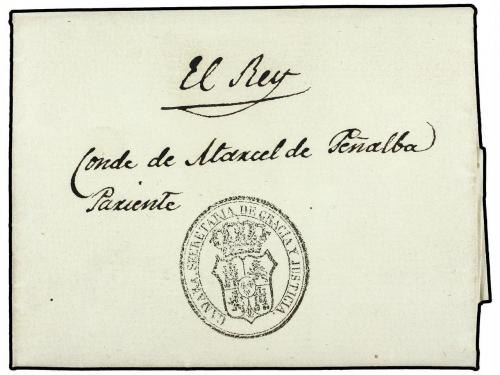 El Rey
Conde de Marcel de Peñalba
Pariente
CAMARA SECRETARIA DE GRACIA Y JUSTICIA